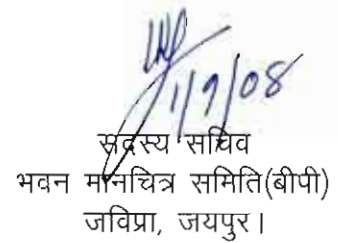 1/9/08
सदस्य सचिव
भवन मानचित्र समिति(बीपी)
जविप्रा, जयपुर।